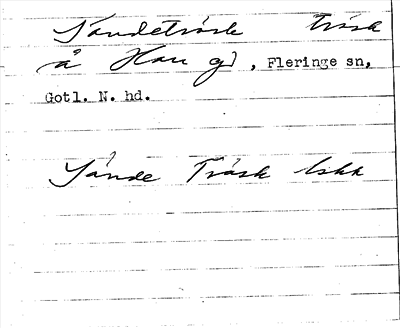 Sandeträsk träsk
å Hau gd, Fleringe sn,
Gotl. N. hd.
Sånde Träsk lskk